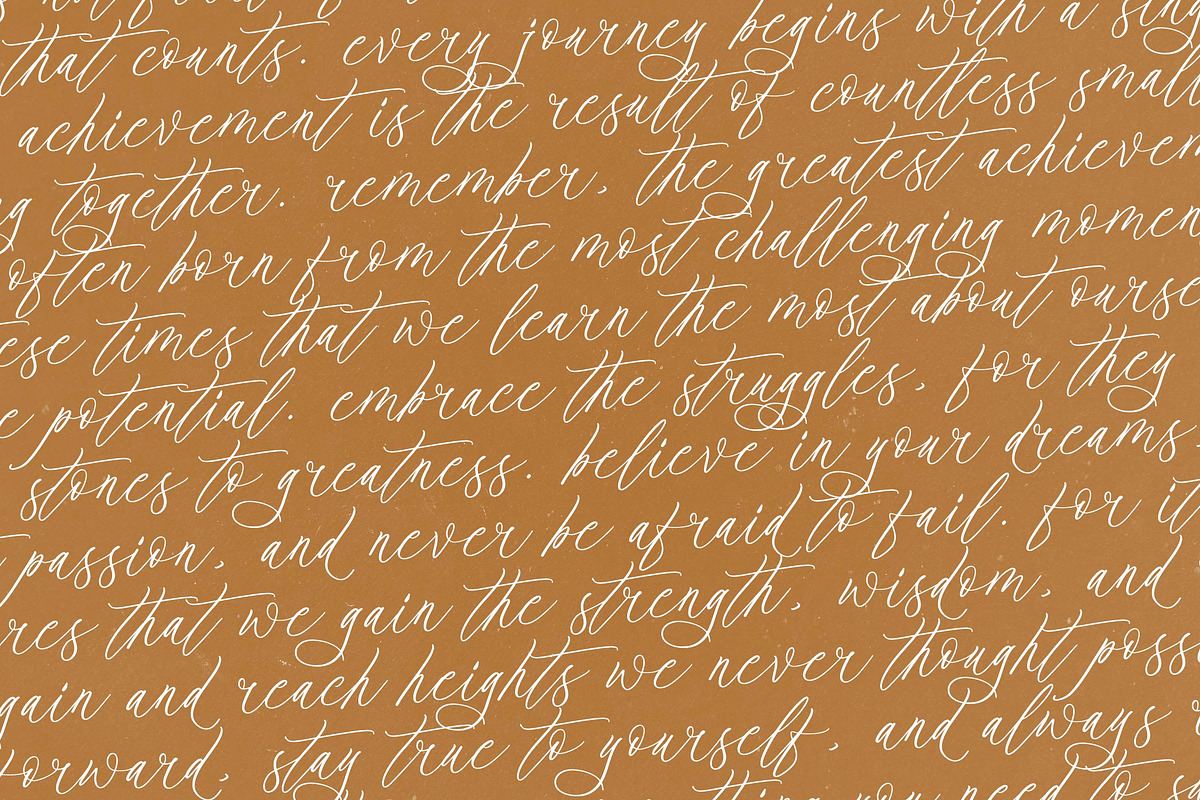 that counts. every journey begins with a
achievement is the result of countless small
together. remember, the greatest
often born from the most challenging
times that we learn the most about
potential. embrace the struggles, for they
stones to greatness. believe in your dreams
passion, and never be afraid to fail. for it
that we gain the strength, wisdom, and
gain and reach heights we never thought
stay true to yourself, and always
you need to